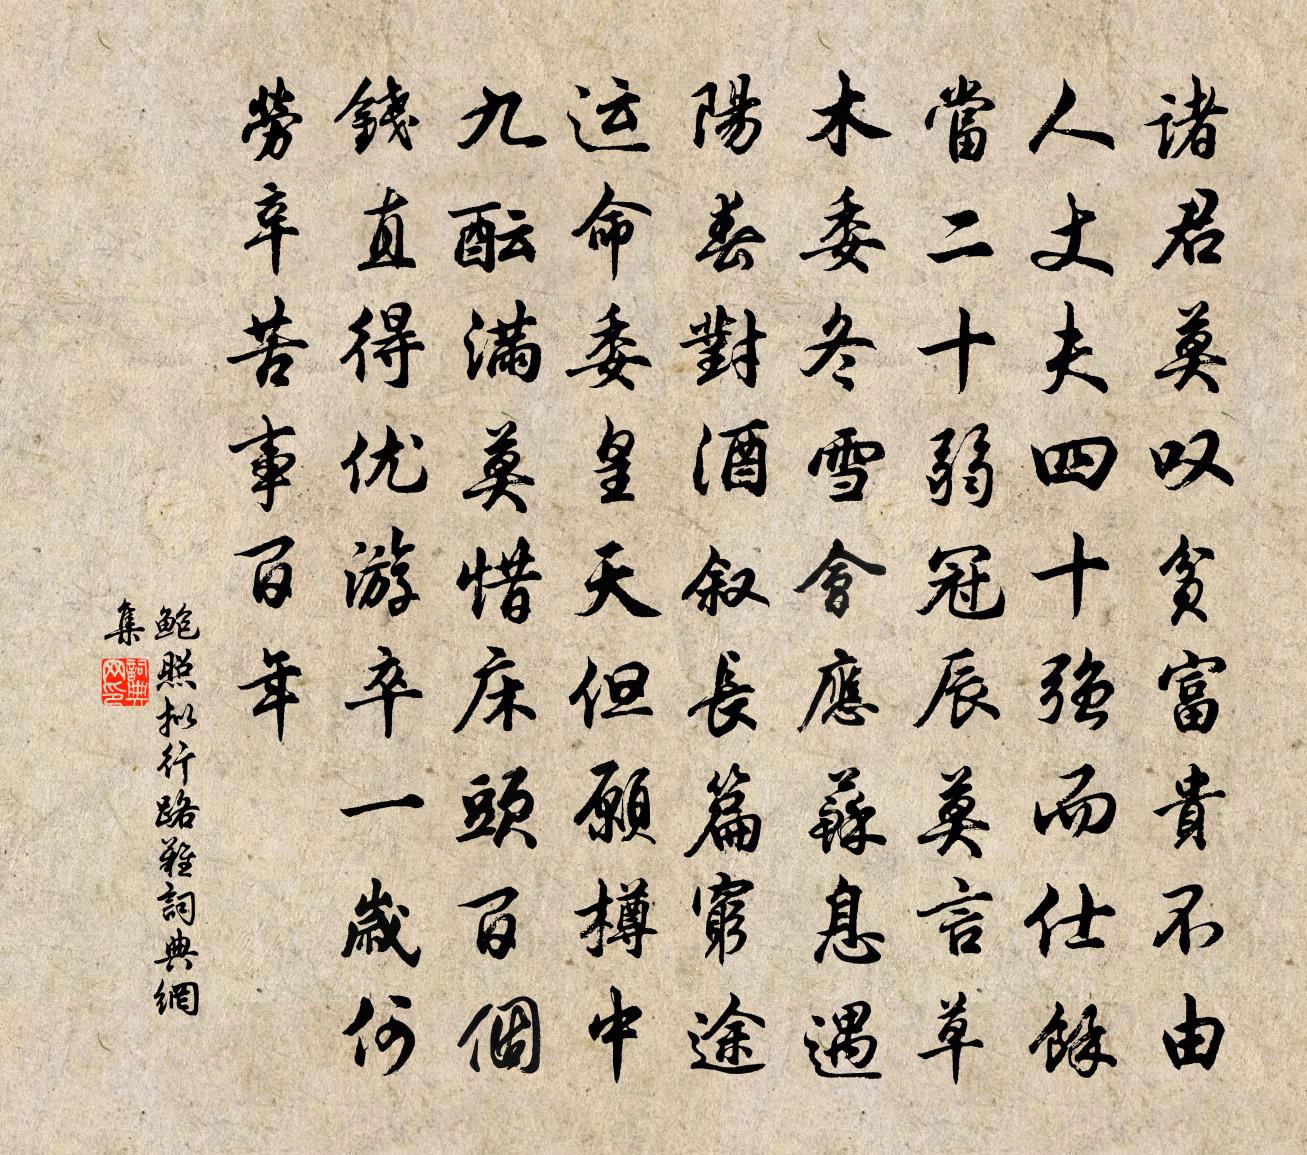 諸君莫叹貧富貴不由
人丈夫四十強而仕餘
當二十弱冠辰莫言草
木委冬雪會應蘇息遇
陽春對酒叙長篇窮途
运命委皇天但願樽中
九酝滿莫惜床頭百個
錢直得优游卒一歲何
勞辛苦事百年
鮑照拟行路難詞典網
集
詞典
网印